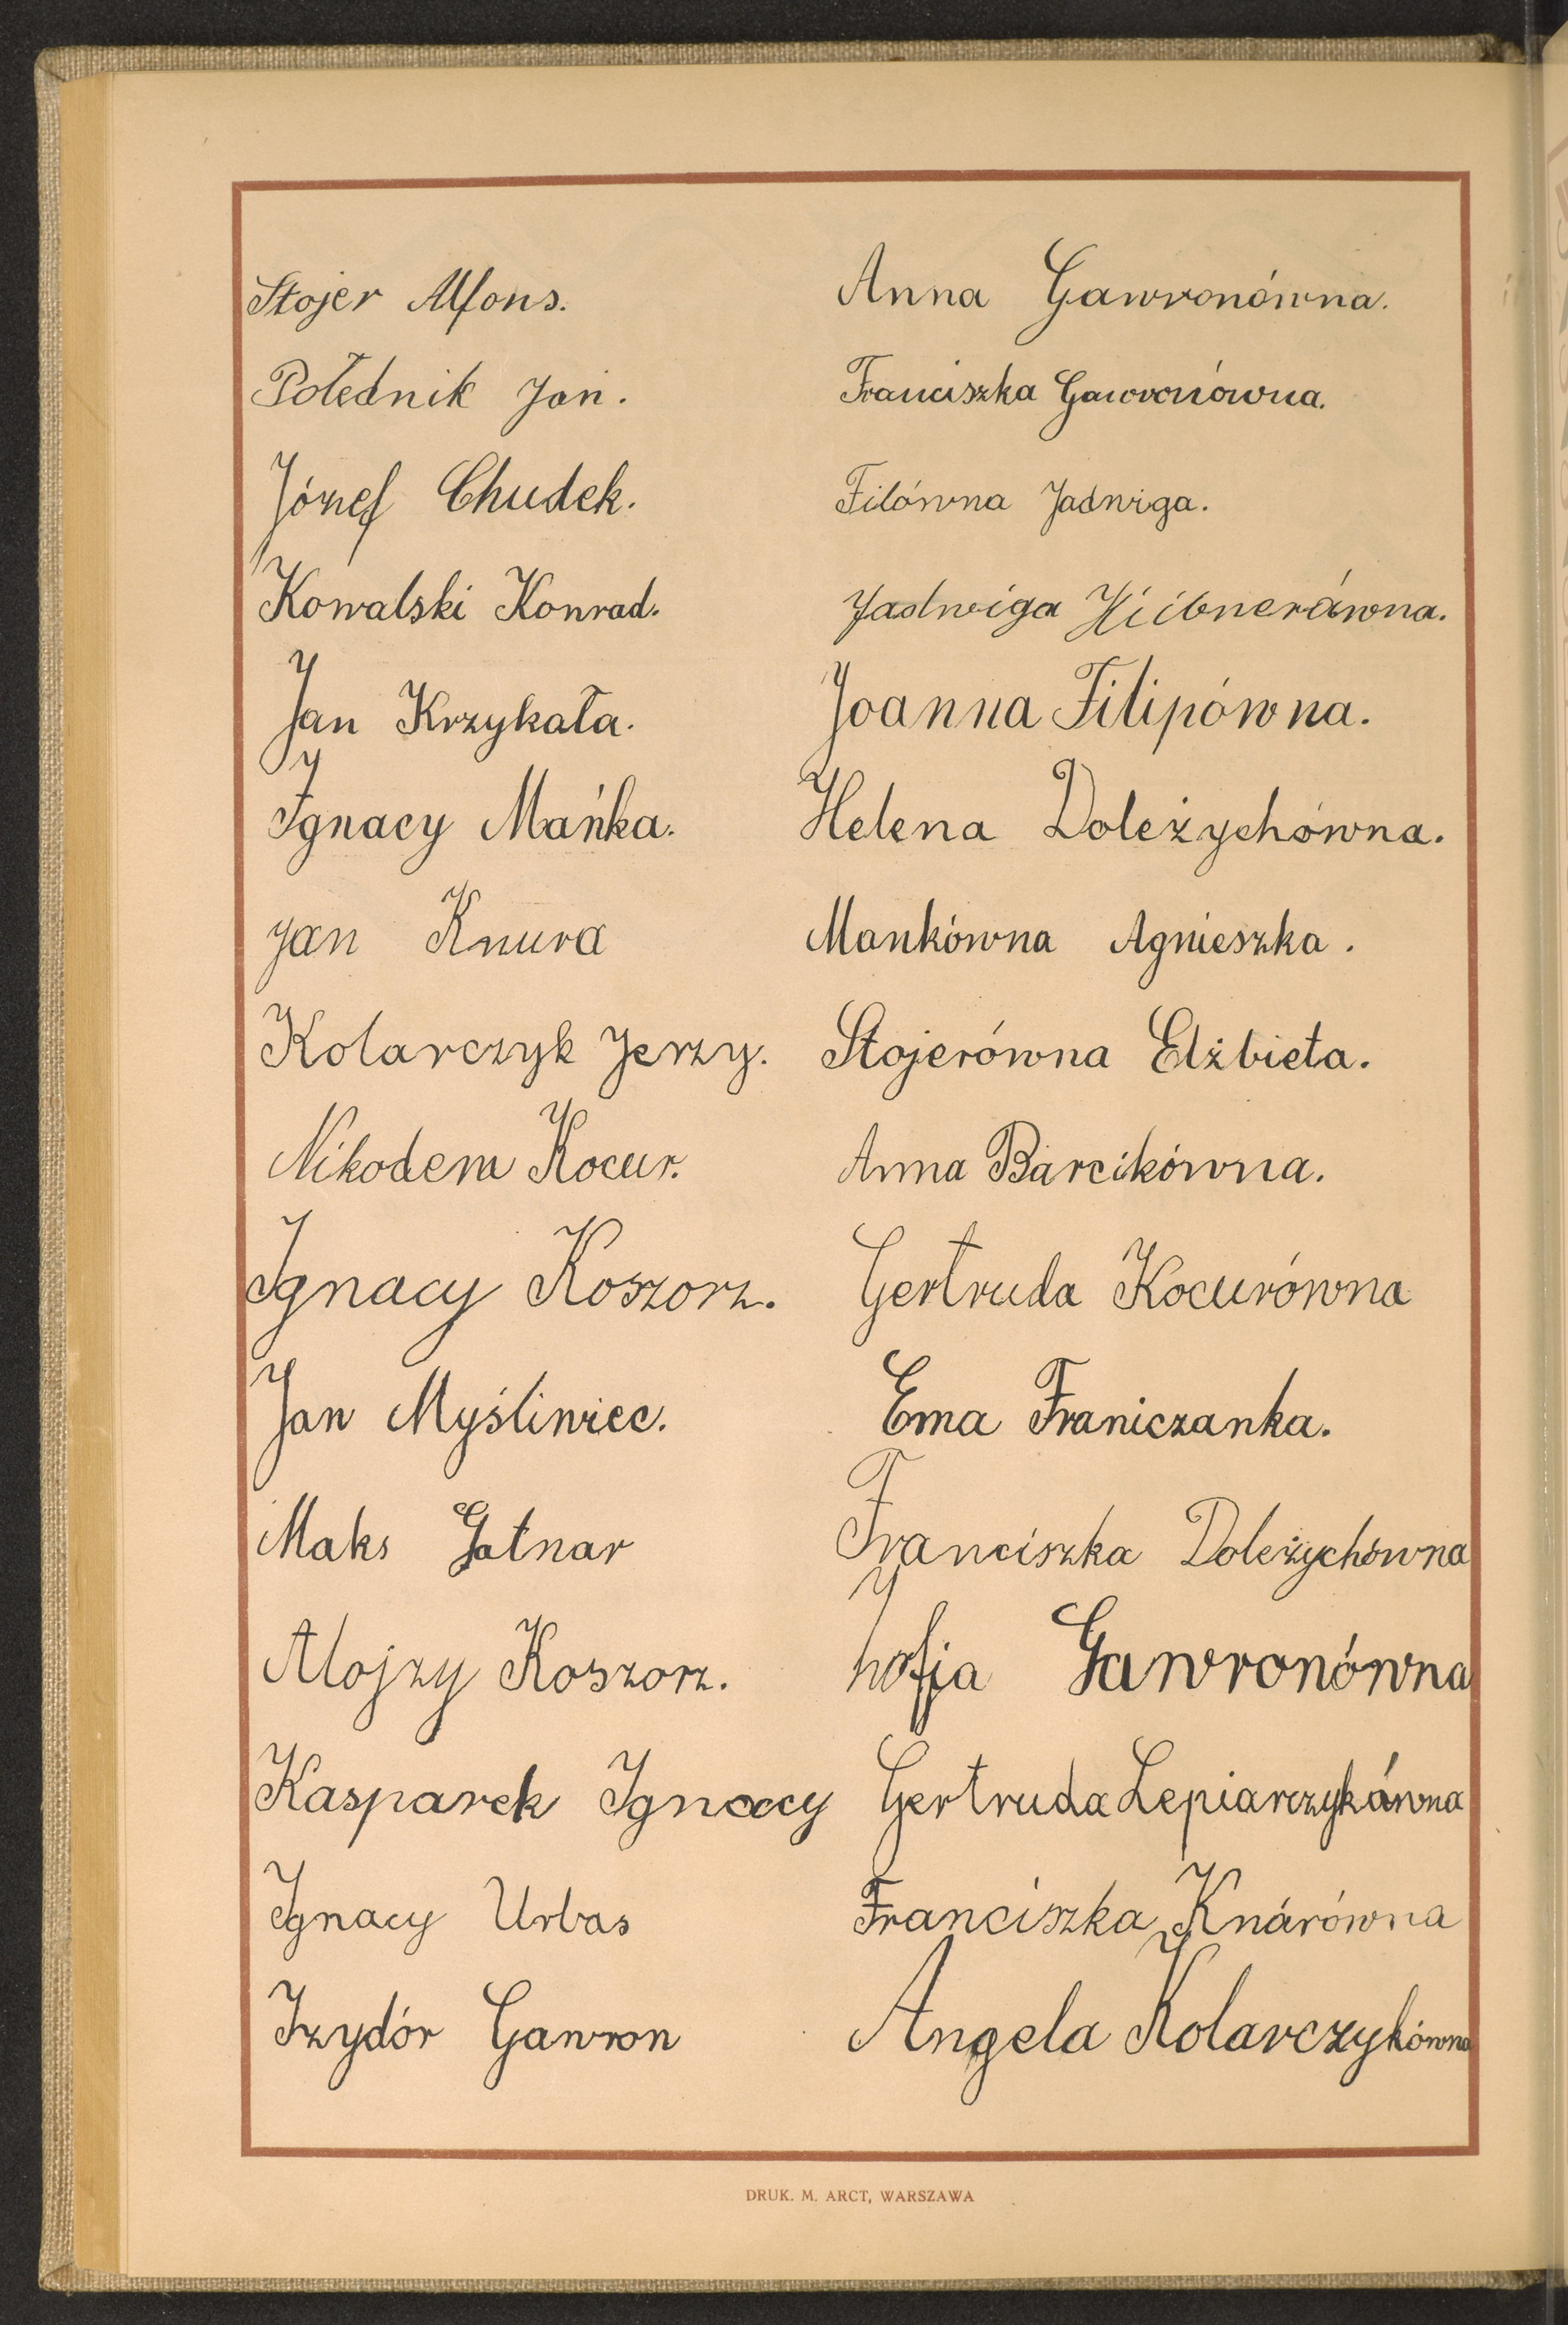 Stojer Alfons.
Połednik Jan.
Józef Chudek.
Kowalski Konrad.
Jan Krzykała.
Ignacy Mańka.
Jan Knura
Kolarczyk Jerzy.
Nikodem Kocur.
Ignacy Koszorz.
Jan Myśliwiec.
Maks Gatnar
Alojzy Koszorz.
Kasparek Ignacy
Ignacy Urbas
Izydór Gawron
Anna Gawronówna.
Franciszka Gawronówna.
Filówna Jadwiga.
Jadwiga Hübnerówna.
Joanna Filipówna.
Helena Doleżychówna.
Mankówna Agnieszka.
Stojerówna Elżbieta.
Anna Barcikówna.
Gertruda Kocurówna
Ema Franiczanka.
Franciszka Doleżychówna
Zofja Gawronówna
Gertruda Lepiarczykówna
Franciszka Knárówna
Angela Kolarczykówna
DRUK. M. ARCT, WARSZAWA